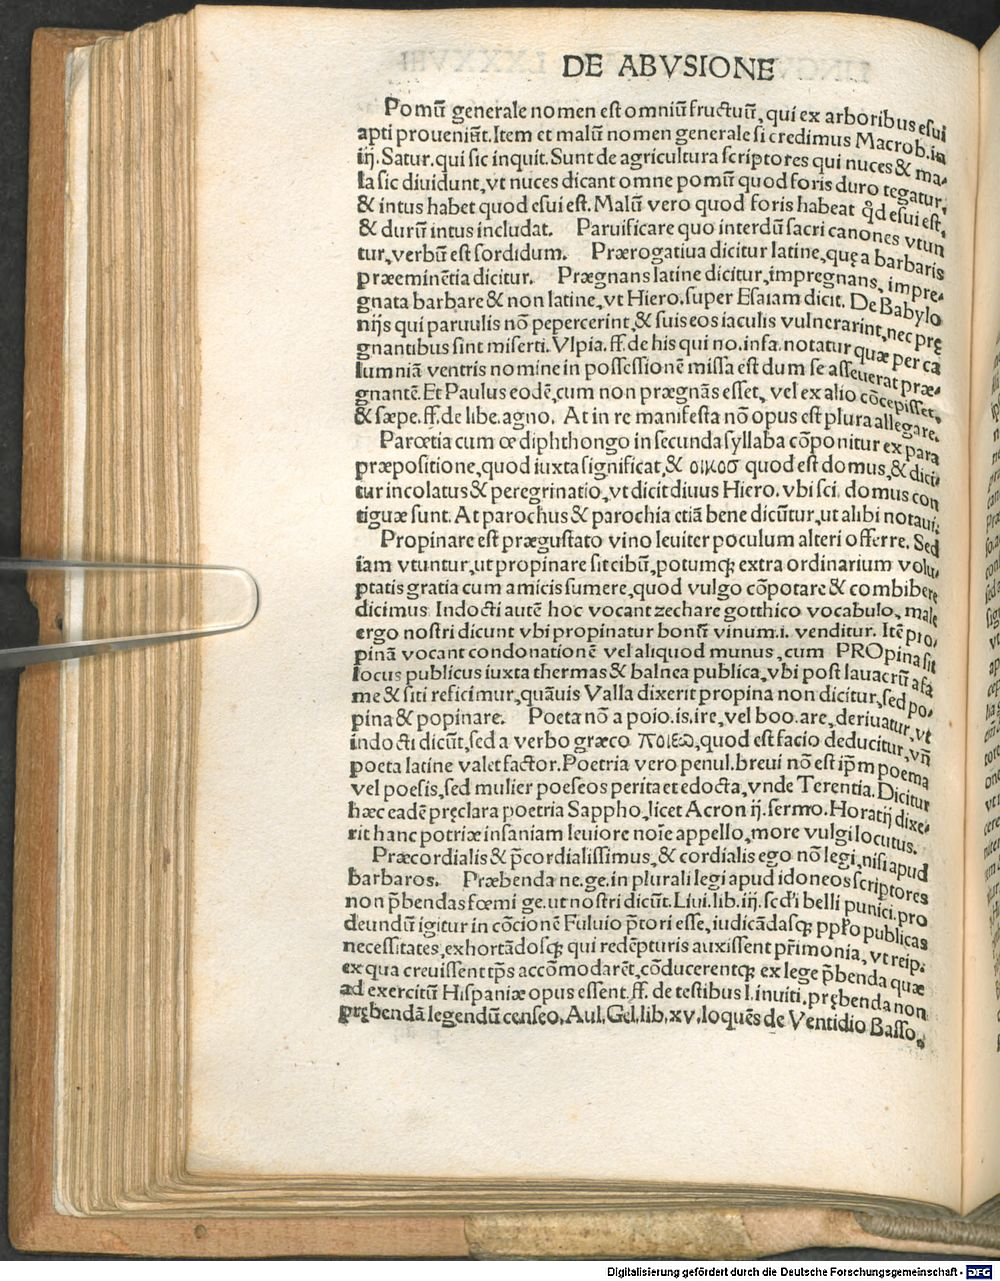 DE ABVSIONE
Pomū generale nomen est omniū fructuū, qui ex arboribus esui
apti proueniūt. Item et malū nomen generale si credimus Macrob. in
iij. Satur. qui sic inquit. Sunt de agricultura scriptores qui nuces & ma-
la sic diuidunt, vt nuces dicant omne pomū quod foris duro tegatur,
& intus habet quod esui est. Malū vero quod foris habeat qd esui est,
& durū intus includat. Paruificare quo interdū sacri canones vtun
tur, verbū est sordidum. Prærogatiua dicitur latine, quę a barbaris
præeminētia dicitur. Prægnans latine dicitur, impregnans, impre-
gnata barbare & non latine, vt Hiero. super Esaiam dicit. De Babylo
nijs qui paruulis nō pepercerint, & suis eos iaculis vulnerarint, nec prę
gnantibus sint miserti. Vlpia. ff. de his qui no. infa. notatur quæ per ca
lumniā ventris nomine in possessionē missa est dum se asseuerat præ-
gnantē. Et Paulus eodē, cum non prægnās esset, vel ex alio cōcepisset,
& sæpe. ff. de libe. agno. At in re manifesta nō opus est plura allegare.
Parœtia cum œ diphthongo in secunda syllaba cōponitur ex para
præpositione, quod iuxta significat, & οικοσ quod est domus, & dici
tur incolatus & peregrinatio, vt dicit diuus Hiero. vbi sci. domus con
tiguæ sunt. At parochus & parochia etiā bene dicūtur, ut alibi notaui.
Propinare est prægustato vino leuiter poculum alteri offerre. Sed
iam vtuntur, ut propinare sit cibū, potumq; extra ordinarium volu-
ptatis gratia cum amicis sumere, quod vulgo cōpotare & combibere
dicimus. Indocti autē hoc vocant zechare gotthico vocabulo, male
ergo nostri dicunt vbi propinatur bonū vinum .i. venditur. Itē pro-
pinā vocant condonationē vel aliquod munus, cum PROpina sit
locus publicus iuxta thermas & balnea publica, vbi post lauacrū a fa
me & siti reficimur, quāuis Valla dixerit propina non dicitur, sed po-
pina & popinare. Poeta nō a poio. is. ire, vel boo. are, deriuatur, vt
indocti dicūt, sed a verbo græco ποιεω, quod est facio deducitur, vñ
poeta latine valet factor. Poetria vero penul. breui nō est ip̄m poema
vel poesis, sed mulier poeseos perita et edocta, vnde Terentia. Dicitur
hæc eadē pręclara poetria Sappho, licet Acron ij. sermo. Horatij dixe-
rit hanc potriæ insaniam leuiore noīe appello, more vulgi locutus.
Præcordialis & p̄cordialissimus, & cordialis ego nō legi, nisi apud
barbaros. Præbenda ne. ge. in plurali legi apud idoneos scriptores
non p̄bendas fœmi ge. ut nostri dicūt. Liui. lib. iij. scdi belli punici. pro
deundū igitur in cōcionē Fuluio p̄tori esse, iudicādasq; pplo publicas
necessitates, exhortādosq; qui redēpturis auxissent pr̄imonia, vt reip.
ex qua creuissent tp̄s accōmodarēt, cōducerentq; ex lege p̄benda quæ
ad exercitū Hispaniæ opus essent. ff. de testibus l. inuiti. prębenda non
prębendā legendū censeo. Aul. Gel. lib. xv. loquēs de Ventidio Basso.
Digitalisierung gefördert durch die Deutsche Forschungsgemeinschaft - DFG